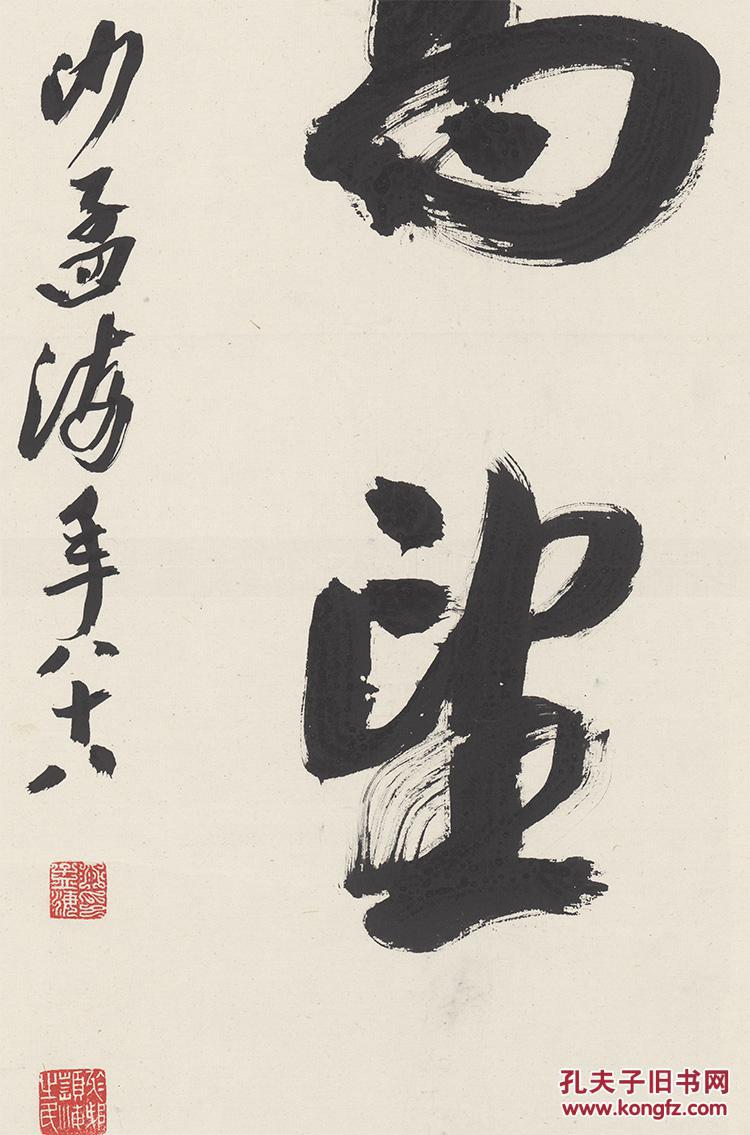 望
沙孟海年八十八
孔夫子旧书网
www.kongfz.com